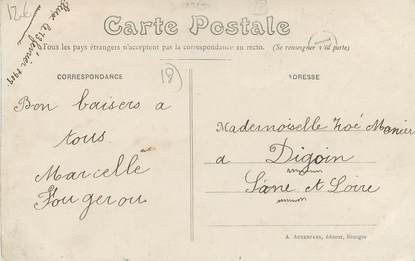 126
le 13 février 1909
Carte Postale
Tous les pays étrangers n'acceptent pas la correspondance au recto. (Se renseigner à la poste)
CORRESPONDANCE
19
ADRESSE
Bon baisers a
tous
Marcelle
Fougerou
Mademoiselle Zoé Manier
a Digoin
Sane et Loire
A. AUXENFANS, éditeur, Bourges